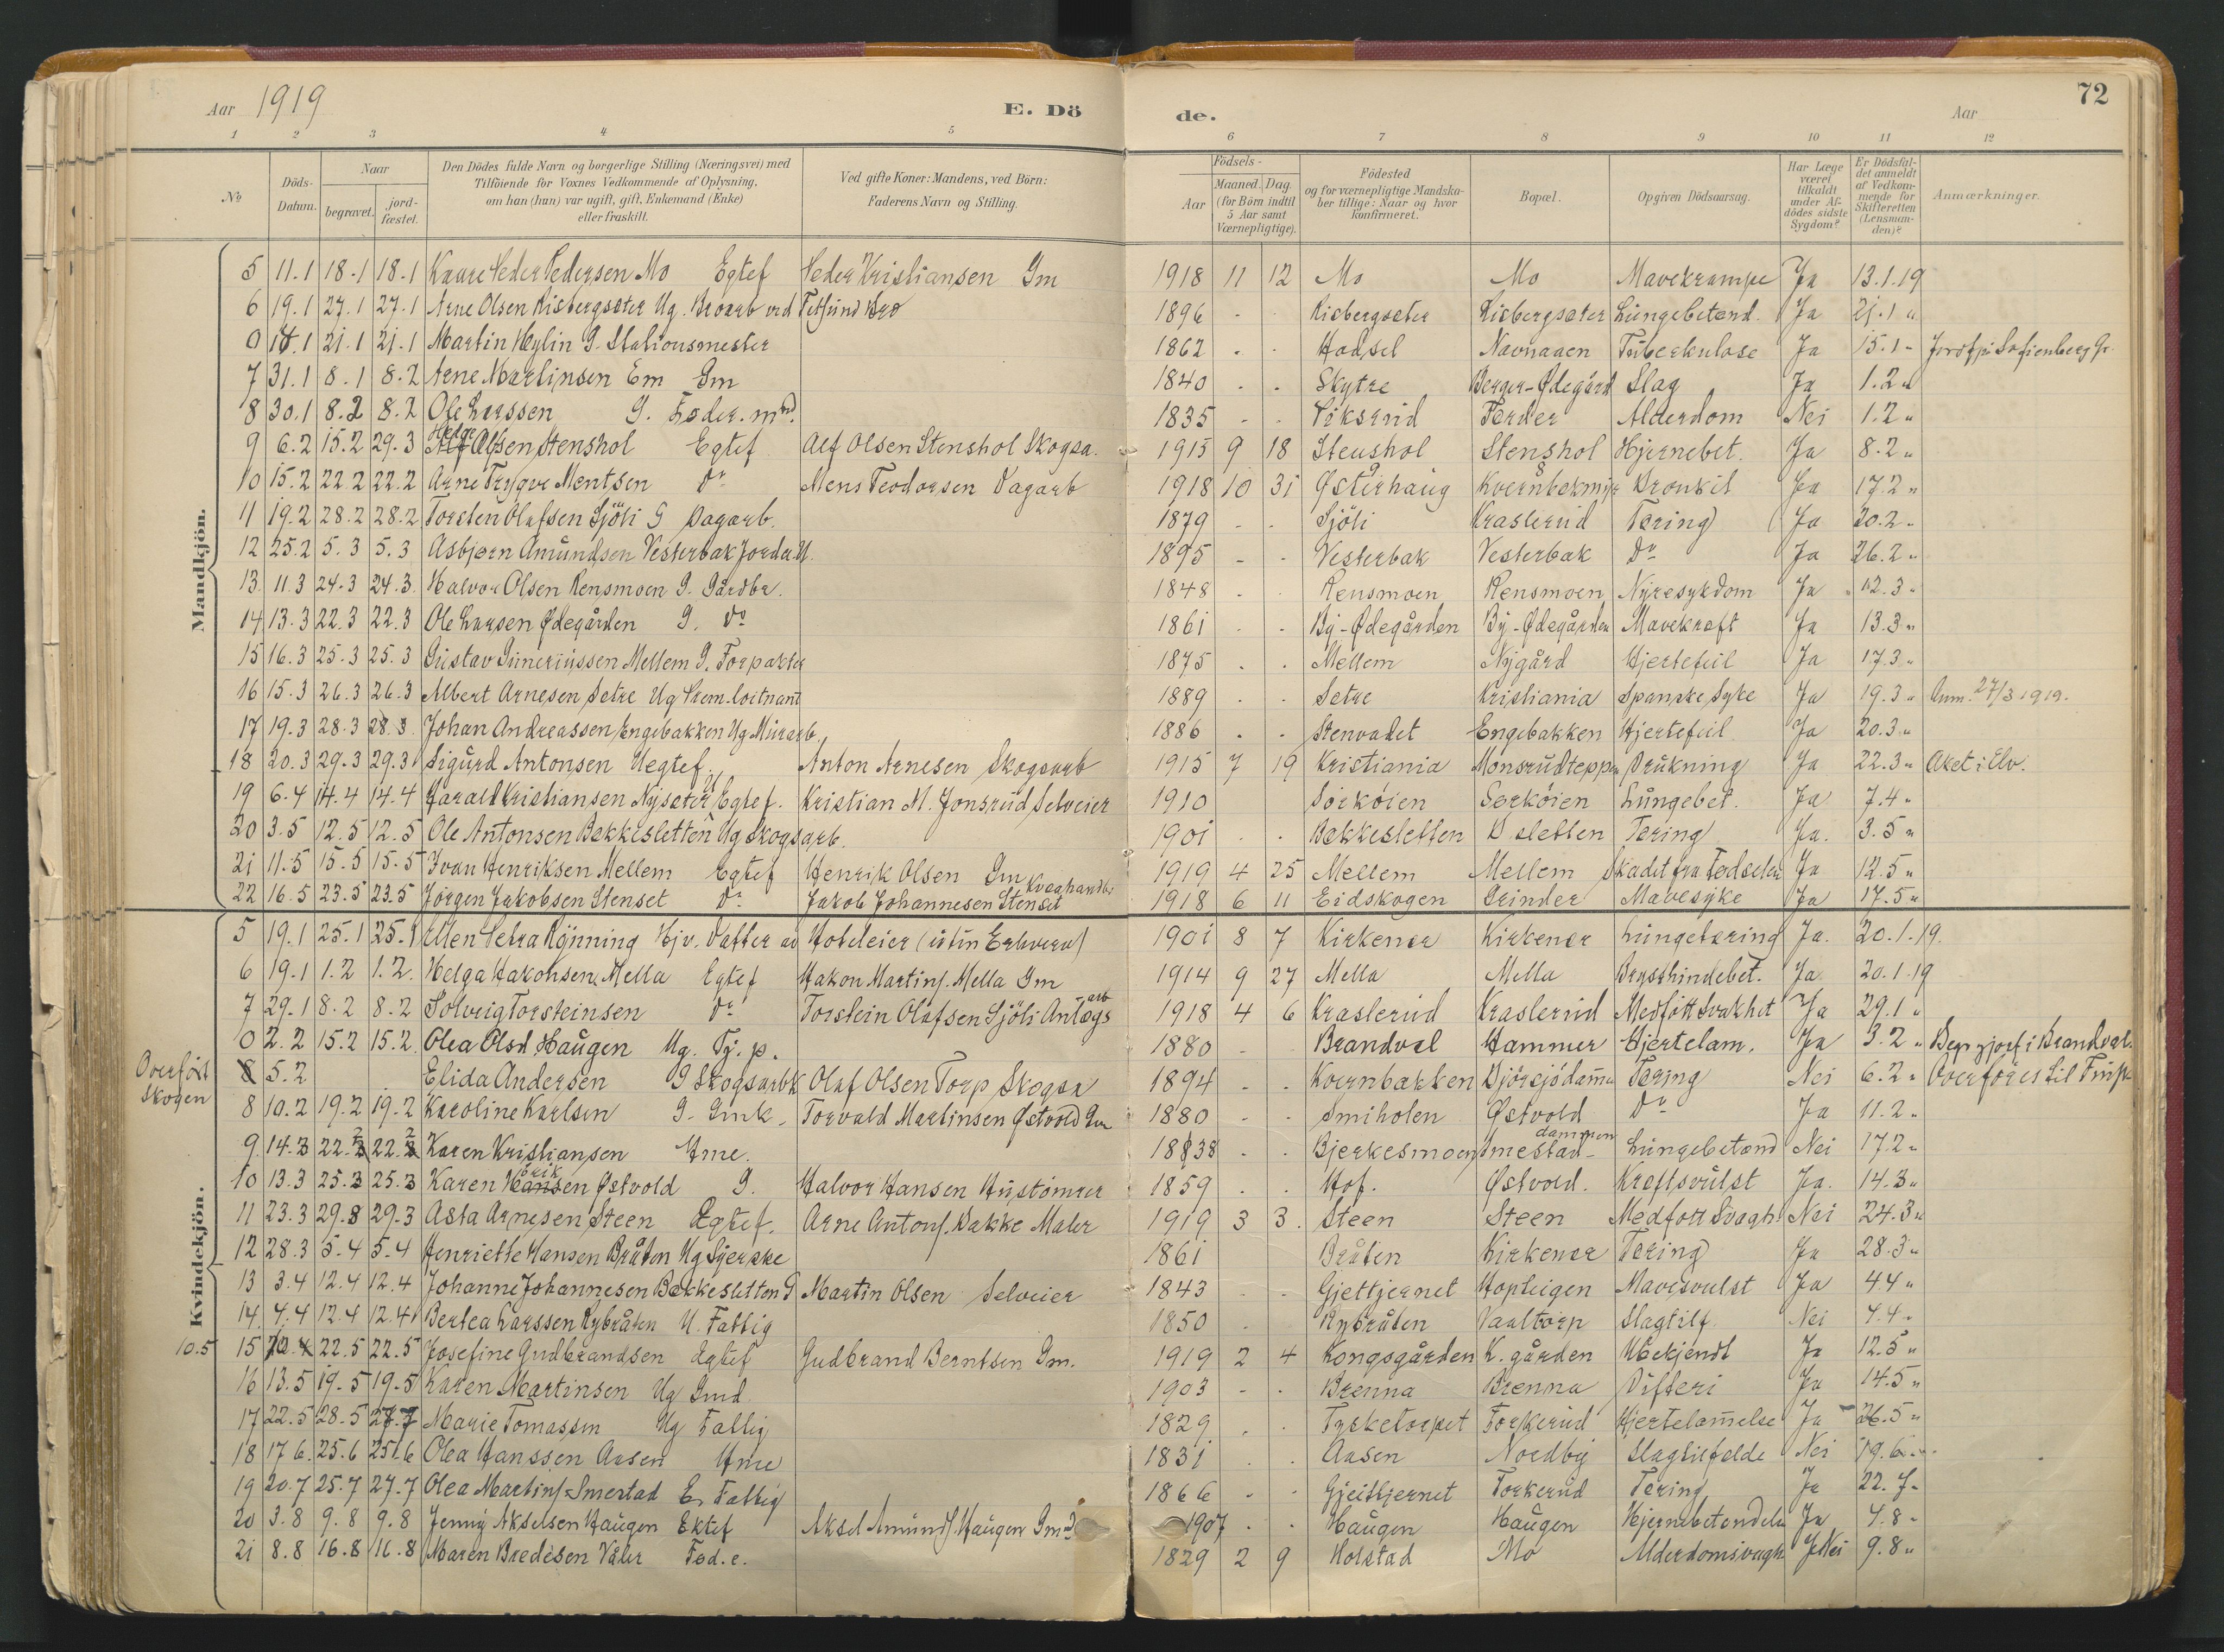 Aar 1919
E. Dö de.
Aar
72
1 2 3 4 5 6 7 8 9 10 11 12
No
Döds-Datum.
Naar
begravet.
jord-fæstet.
Den Dödes fulde Navn og borgerlige Stilling (Næringsvei) med
Tilföiende for Voxnes Vedkommende af Oplysning,
om han (hun) var ugift, gift, Enkemand (Enke)
eller fraskilt.
Ved gifte Koner: Mandens, ved Börn:
Faderens Navn og Stilling.
Födsels-
Aar
Maaned. Dag.
(for Börn indtil
5 Aar samt
Værnepligtige).
Födested
og for værnepligtige Mandska-
ber tillige: Naar og hvor
konfirmeret.
Bopæl.
Opgiven Dödsaarsag.
Har Læge
været
tilkaldt
under Af-
dödes sidste
Sygdom?
Er Dödsfal-
det anmeldt
af Vedkom-
mende for
Skifteretten
(Lensman-
den)?
Anmærkninger.
Mandkjön.
5 11.1 18.1 18.1 Kaare Peder Pedersen Mo Egtef Peder Kristiansen Gm 1918 11 12 Mo Mo Mavekrampe Ja 13.1.19
6 19.1 27.1 27.1 Arne Olsen Risbergseter Ug. Broarb ved Fetsund Bro 1896 - - Risbergseter Risbergseter Lungebetænd. Ja 21.1 "
0 14.1 21.1 21.1 Martin Heylin G. Stationsmester 1862 - - Hadsel Navnaaen Tuberkulose Ja 15.1 " Jordf. på Sofienberg Gr.
7 31.1 8.1 8.2 Arne Martinsen Em Gm 1840 - - Skytre Berger-Ødegård Slag Ja 1.2 "
8 30.1 8.2 8.2 Ole Larssen G. Føder.md. 1835 - - Viksrud Førder Alderdom Nei 1.2 "
9 6.2 15.2 29.3 Helge Alfsen Stenshol Egtef Alf Olsen Stenshol Skogsa. 1915 9 18 Stenshol Stenshol Hjernebet. Ja 8.2 "
10 15.2 22.2 22.2 Arne Trygve Mentsen do Mens Teodorsen Dagarb 1918 10 31 Østerhaug Kvernbekmyr Bronkit Ja 17.2 "
11 19.2 28.2 28.2 Torsten Olafsen Sjöli G Dagarb. 1879 - - Sjöli Kraslerud Tæring Ja 20.2 "
12 25.2 5.3 5.3 Asbjørn Amundsen Vesterbak Jorda. U. 1895 - - Vesterbak Vesterbak do Ja 26.2 "
13 11.3 24.3 24.3 Halvor Olsen Rensmoen G. Gårdbr. 1848 - - Rensmoen Rensmoen Nyresykdom Ja 12.3 "
14 13.3 22.3 22.3 Ole Larsen Ødegården G. do 1861 - - By-Ødegården By-Ødegården Mavekræft Ja 13.3 "
15 16.3 25.3 25.3 Gustav Guneriussen Mellem G. Forpakter 1875 - - Mellem Nygård Hjertefeil Ja 17.3 "
16 15.3 26.3 26.3 Albert Arnesen Setre Ug Prem.loitnant 1889 - - Setre Kristiania Spanske Syke Ja 19.3 " Anm. 27/3 1919.
17 19.3 28.3 28.3 Johan Andreassen Engebakken Ug Murarb. 1886 - - Stenvadet Engebakken Hjertefeil Ja 20.3 "
18 20.3 29.3 29.3 Sigurd Antonsen Uegtef. Anton Arnesen Skogsarb 1915 7 19 Kristiania Monsrudteppen Drukning Ja 22.3 " Aket i Elv.
19 6.4 14.4 14.4 Harald Kristiansen Nyseter Egtef. Kristian M. Jonsrud Selveier 1910 Sørkøien Serkøien Lungebet. Ja 7.4 "
20 3.5 12.5 12.5 Ole Antonsen Bekkesletten Ug Skogsarb. 1901 - - Bekkesletten B sletten Tæring Ja. 3.5 "
21 11.5 15.5 15.5 Ivan Henriksen Mellem Egtef Henrik Olsen Gm 1919 4 25 Mellem Mellem Skadet fra Fødselen Ja 12.5 "
22 16.5 23.5 23.5 Jørgen Jakobsen Stenset do Jakob Johannesen Stenset Kvæghandl. 1918 6 11 Eidskogen Grinder Mavesyke Ja 17.5 "
Kvindekjön.
5 19.1 25.1 25.1 Ellen Petra Rønning Hjv. Datter av Hoteleier (uten Erhverv) 1901 8 7 Kirkenær Kirkenær Lungetæring Ja. 20.1.19.
6 19.1 1.2 1.2 Helga Hakonsen Mella Egtef Hakon Martins. Mella Gm 1914 9 27 Mella Mella Brysthindebet. Ja 20.1.19
7 29.1 8.2 8.2 Solveig Torsteinsen do Torstein Olafsen Sjöli Anlægsarb 1918 4 6 Kraslerud Kraslerud Medfött Svakhet Ja 29.1 "
0 2.2 15.2 15.2 Olea Olsd Haugen Ug. Tj.p. 1880 - Brandval Hammer Hjertelam. Ja 3.2 " Begr. og jordf i Brandval.
Overført Skogen
8 5.2 Elida Andersen G Skogsarbk Olaf Olsen Torp Skogsa 1894 - - Kvernbakken Djöpsjödam̄en Tæring Nei 6.2 " Overføres til Finsk.
8 10.2 19.2 19.2 Karoline Karlsen G. Gmk. Torvald Martinsen Østvold Gm 1880 - - Smiholen Østvold do Ja 11.2 "
9 14.3 22.2 22.2 Karen Kristiansen Hme. 1838 - - Bjerkesmoen Smestad-dammen Lungebetænd Nei 17.2 "
10 13.3 25.3 25.3 Karen Hansen Østvold G. Halvor Hansen Hustømrer 1859 - - Hof. Østvold. Kreftsvulst Ja. 14.3 "
11 23.3 29.8 29.3 Asta Arnesen Steen Egtef. Arne Antons. Bakke Maler 1919 3 3. Steen Steen Medfött Svagh. Nei 24.3 "
12 28.3 5.4 5.4 Henriette Hansen Bråten Ug Syerske 1861 Bråten Kirkenær Tæring Ja 28.3 "
13 3.4 12.4 12.4 Johanne Johannesen Bekkesletten G Martin Olsen Selveier 1843 - - Gjettjernet Hopteigen Mavesvulst Ja 4.4 "
14 4.4 12.4 12.4 Bertea Larssen Rybråten U. Fattig 1850 - Rybråten Vaaltorp Slagtilf. Nei 4.4 "
10.5 15 22.5 22.5 Josefine Gudbrandsen Egtef Gudbrand Berntsen Gm. 1919 2 4 Kongsgården K. gården Ubekjendt Ja 12.5 "
16 13.5 19.5 19.5 Karen Martinsen Ug Gmd. 1903 - - Brenna Brenna Difteri Ja 14.5 "
17 22.5 28.5 27.7 Marie Tomassen Ug Fattig 1829 - - Tysketorpet Torkerud Hjertelam̄else Ja 26.5 "
18 17.6 25.6 25.6 Olea Hanssen Aasen Hme 1831 - - Aasen Nordby Slagtilfelde Nei 19.6 "
19 20.7 25.7 27.7 Olea Martins. Smestad E. Fattig 1866 - - Gjeittjernet Torkerud Tæring Ja 22.7 "
20 3.8 9.8 9.8 Jenny Akselsen Haugen Ektef Aksel Amunds. Haugen Gmd 1907 - - Haugen Haugen Hjernebetendelse Ja 4.8 "
21 8.8 16.8 16.8 Maren Bredesen Våler Fød.e. 1829 2 9 Holstad Mo Alderdomsvagh. Nei 9.8 "